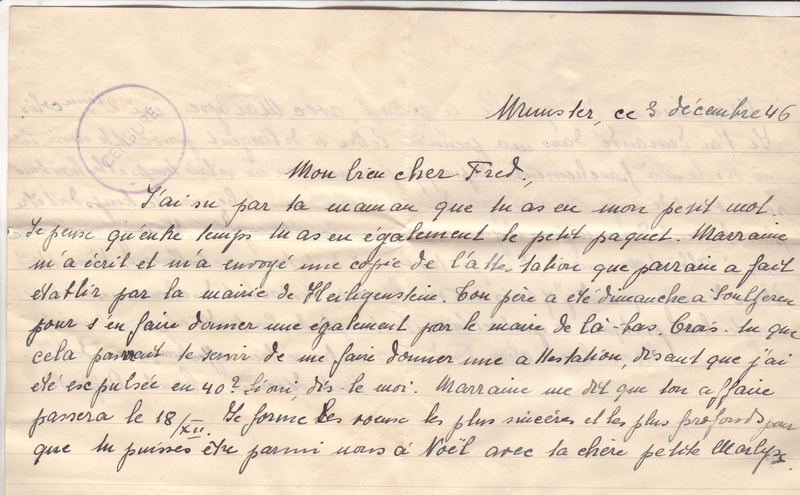 CENSURE
Munster, ce 3 décembre 46
Mon bien cher Fred.,
J'ai su par ta maman que tu as eu mon petit mot.
Je pense qu'entre temps tu as eu également le petit paquet. Marraine
m'a écrit et m'a envoyé une copie de l'attestation que parrain a fait
établir par la mairie de Heiligenstein. Ton père a été dimanche à Soultzeren
pour s'en faire donner une également par le maire de là-bas. Crois-tu que
cela pourrait te servir de me faire donner une attestation, disant que j'ai
été expulsée en 40? Si oui, dis-le moi. Marraine me dit que ton affaire
passera le 18/XII. Je forme les voeux les plus sincères et les plus profonds pour
que tu puisses être parmi nous à Noël avec ta chère petite